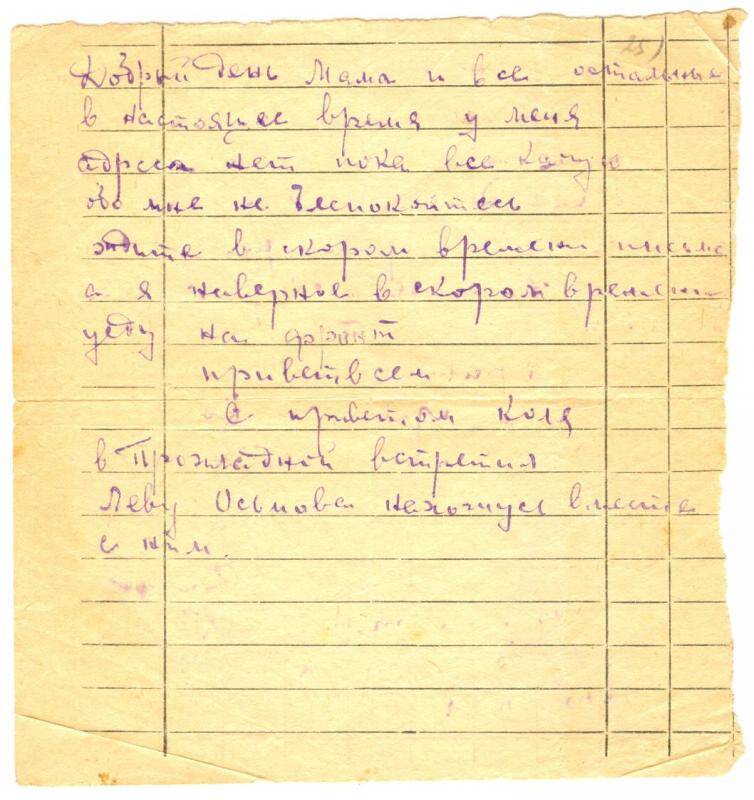 25)
Добрый день Мама и все остальные
в настоящее время у меня
адреса нет пока все
обо мне не беспокойтесь
ждите в скором времени письмо
а я наверное в скором времени
уеду на фронт
привет всем
С приветом Коля
в Прохладной встретил
Леву Осипова нахожусь вместе
с ним.